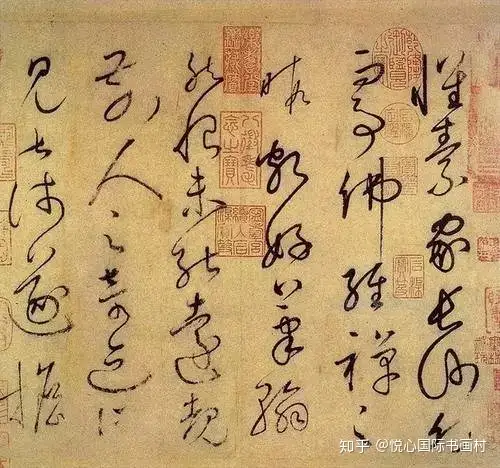 懷素家長沙幼
而事佛經禪之
暇頗好筆翰
然恨未能遠覩
前人之奇迹所
見甚淺遂擔
八徵耄念之寶
知乎 @悦心国际书画村